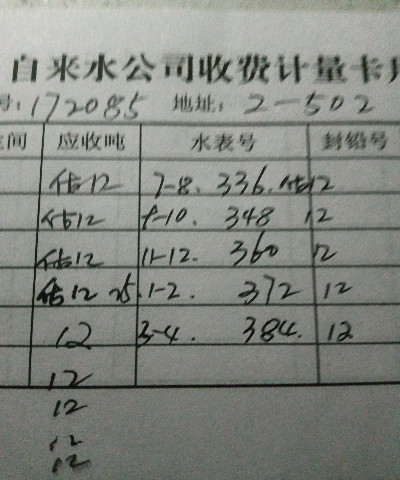 自来水公司收费计量卡片
号:172085 地址:2-502
间 应收吨 水表号 封铅号
估12 7-8. 336. 估12
估12 9-10. 348 12
估12 11-12. 360 12
估12 1-2. 372 12
12 3-4. 384. 12
12
12
12
12